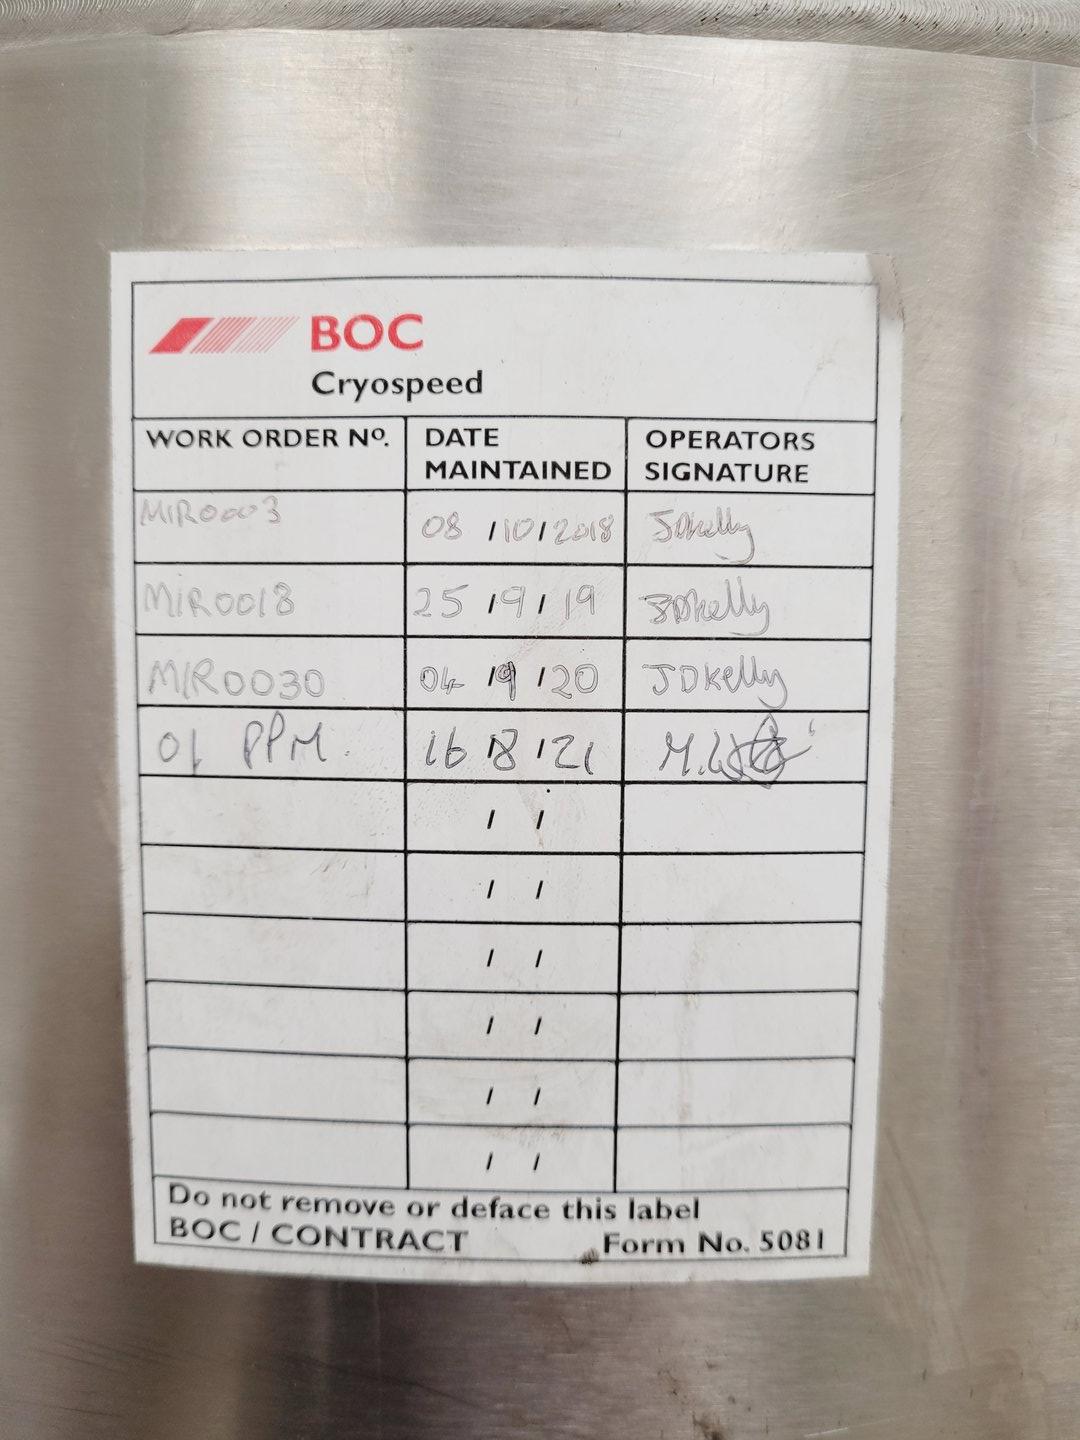 BOC
Cryospeed
WORK ORDER Nº. DATE MAINTAINED OPERATORS SIGNATURE
MIR0003 08 / 10 / 2018 JDKelly
MIR0018 25 / 9 / 19 JDKelly
MIR0030 04 / 9 / 20 JDKelly
01 PPM. 16 / 8 / 21 M.
/ /
/ /
/ /
/ /
/ /
/ /
Do not remove or deface this label
BOC / CONTRACT Form No. 5081